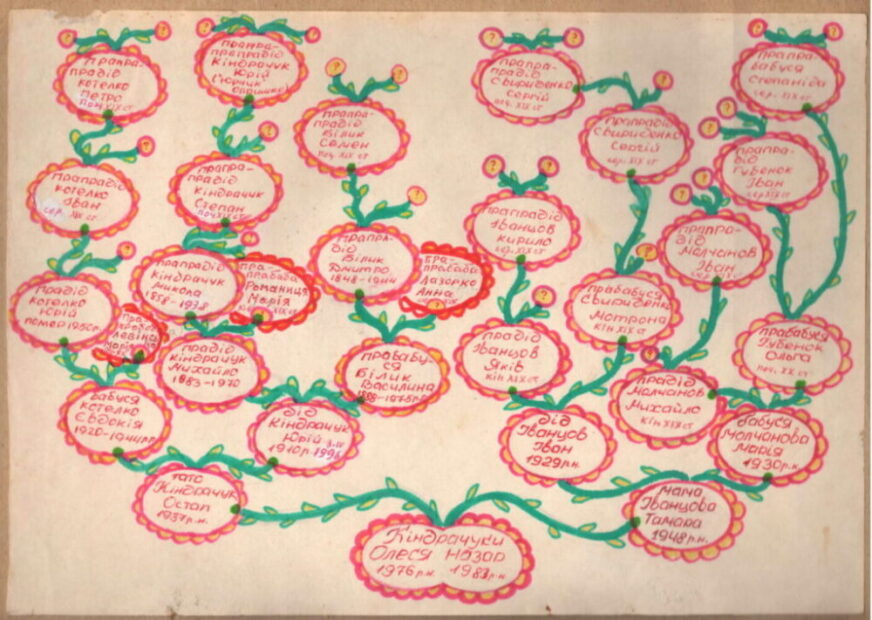 прапра-
прадід
Котелко
Петро
поч. XIX ст
прапра-
прапрадід
Кіндрачук
Юрій
прапра-
прадід
Білик
Семен
поч XIX ст
прапра-
прадід
Свириденко
Сергій
поч. XIX ст
прапра-
бабуся
Степаніда
сер. XIX ст
прапрадід
Свириденко
Сергій
сер. XIX ст
прапра-
дід
Губенок
Іван
сер XIX ст
прапрадід
Котелко
Іван
сер. XIX ст
прапра-
прадід
Кіндрачук
Степан
поч XIX ст
прапрадід
Іванцов
Кирило
сер. XIX ст
прапра-
дід
Молчанов
Іван
прапра-
дід
Білик
Дмитро
1848-1944
пра-
прабаба
Лазорко
Анна
прапрадід
Кіндрачук
Микола
1858-1938
пра-
прабаба
Романиця
Марія
прадід
Котелко
Юрій
помер 1950р.
прабабуся
Свириденко
Мотрона
кін. XIX ст
прабабуся
Губенок
Ольга
поч. XX ст
прадід
Кіндрачук
Михайло
1883-1970
прабабу-
ся
Білик
Василина
1888-1975р.р.
прадід
Іванцов
Яків
кін XIX ст
прадід
Молчанов
Михайло
кін XIX ст
бабуся
Котелко
Євдокія
1920-1944р.р.
дід
Кіндрачук
Юрій
1910р.
дід
Іванцов
Іван
1929р.н.
бабуся
Молчанова
Марія
1930р.н.
тато
Кіндрачук
Остап
1937р.н.
мама
Іванцова
Тамара
1948р.н.
Кіндрачуки
Олеся Назар
1976р.н. 1983р.н.